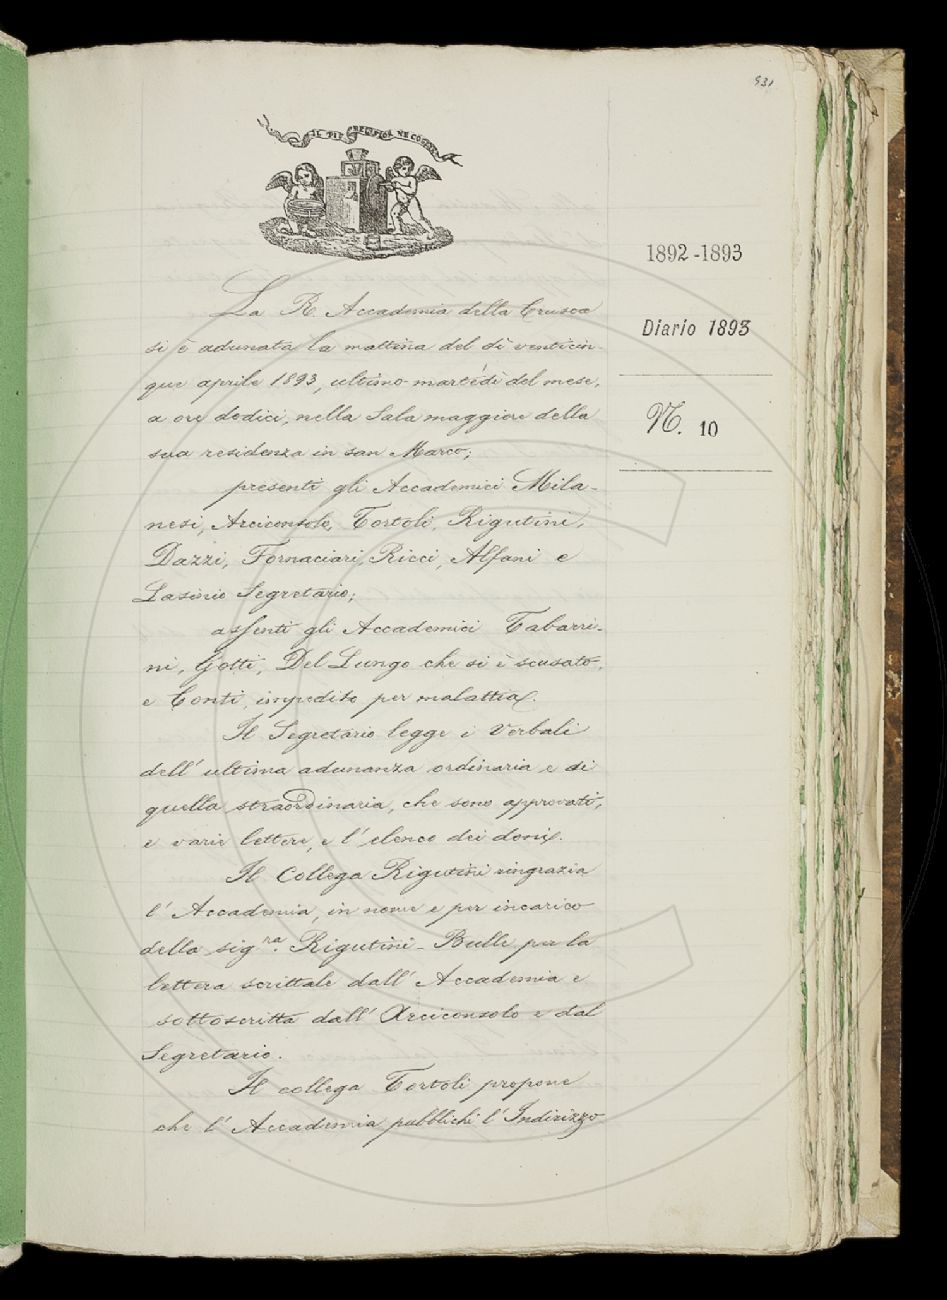 931
IL PIÙ BEL FIOR NE COGLIE
1892-1893
Diario 1893
N. 10
La R. Accademia della Crusca
si è adunata la mattina del dì venticin-
que aprile 1893, ultimo martedì del mese,
a ore dodici, nella Sala maggiore della
sua residenza in san Marco;
presenti gli Accademici Mila-
nesi, Arciconsolo, Tortoli, Rigutini,
Dazzi, Fornaciari, Ricci, Alfani e
Lasinio Segretario;
assenti gli Accademici Tabarri-
ni, Gotti, Del Lungo che si è scusato,
e Conti, impedito per malattia.
Il Segretario legge i Verbali
dell' ultima adunanza ordinaria e di
quella straordinaria, che sono approvati,
e varie lettere, e l' elenco dei doni.
Il Collega Rigutini ringrazia
l' Accademia, in nome e per incarico
della sig.ra Rigutini-Bulle per la
lettera scrittale dall' Accademia e
sottoscritta dall' Arciconsolo e dal
Segretario.
Il collega Tortoli propone
che l' Accademia pubblichi l' Indirizzo